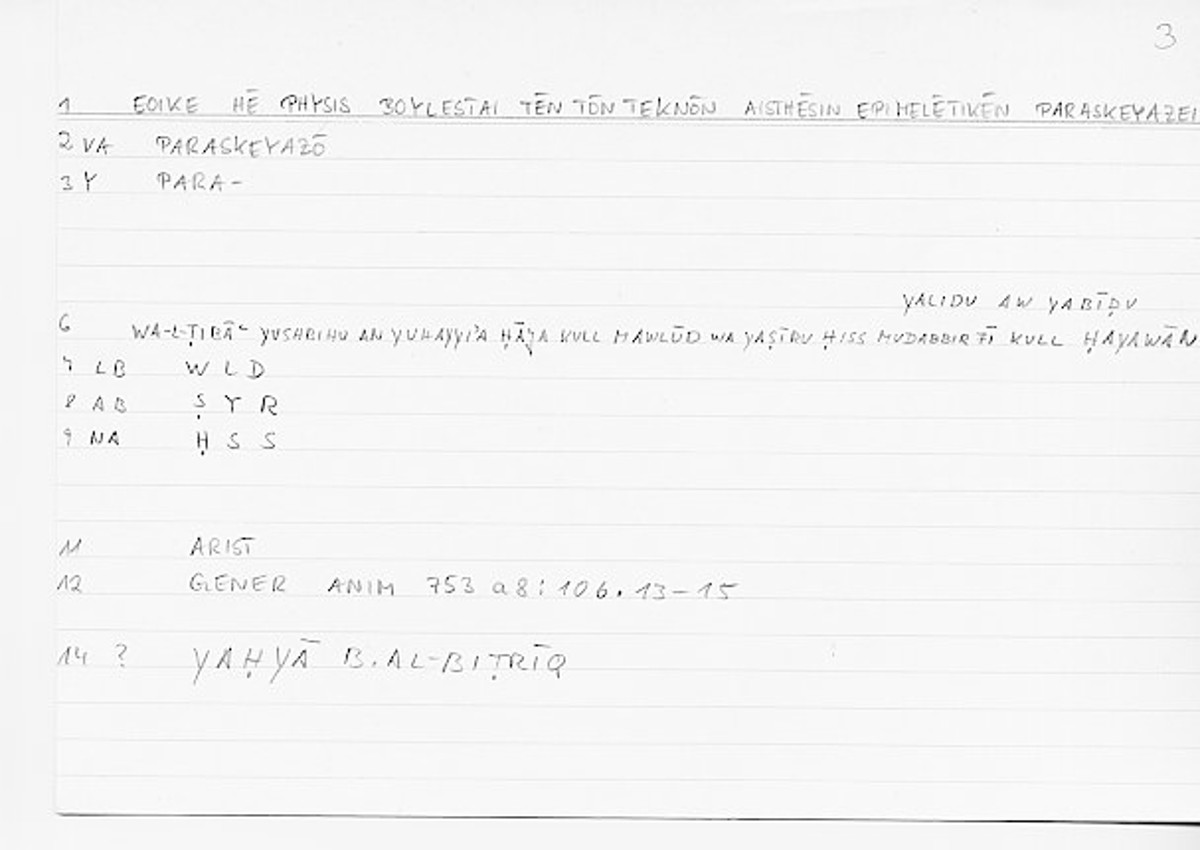 3
1 EOIKE HĒ PHYSIS BOYLESTAI TĒN TŌN TEKNŌN AISTHĒSIN EPIMELĒTIKĒN PARASKEYAZEI
2 VA PARASKEYAZŌ
3 Y PARA-
YALIDU AW YABĪḌU
6 WA-L-ṬIBĀʿ YUSHBIHU AN YUHAYYIʾA ḤĀJA KULL MAWLŪD WA YAṢĪRU ḤISS MUDABBIR FĪ KULL ḤAYAWĀN
7 LB W L D
8 AB Ṣ Y R
9 NA Ḥ S S
11 ARIST
12 GENER ANIM 753 a8: 106. 13-15
14 ? YAḤYĀ B. AL-BIṬRĪQ